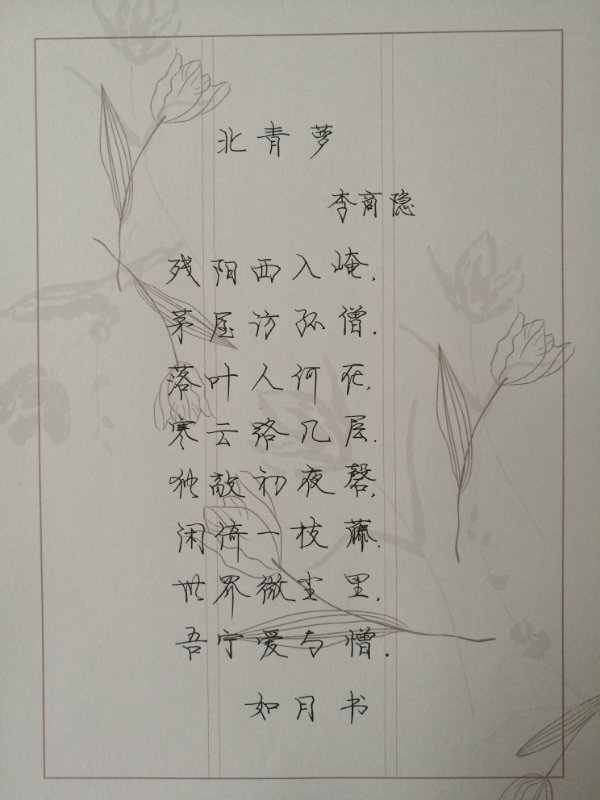 北青萝
李商隐
残阳西入崦，
茅屋访孤僧．
落叶人何在，
寒云路几层．
独敲初夜磬，
闲倚一枝藤．
世界微尘里，
吾宁爱与憎．
如月书